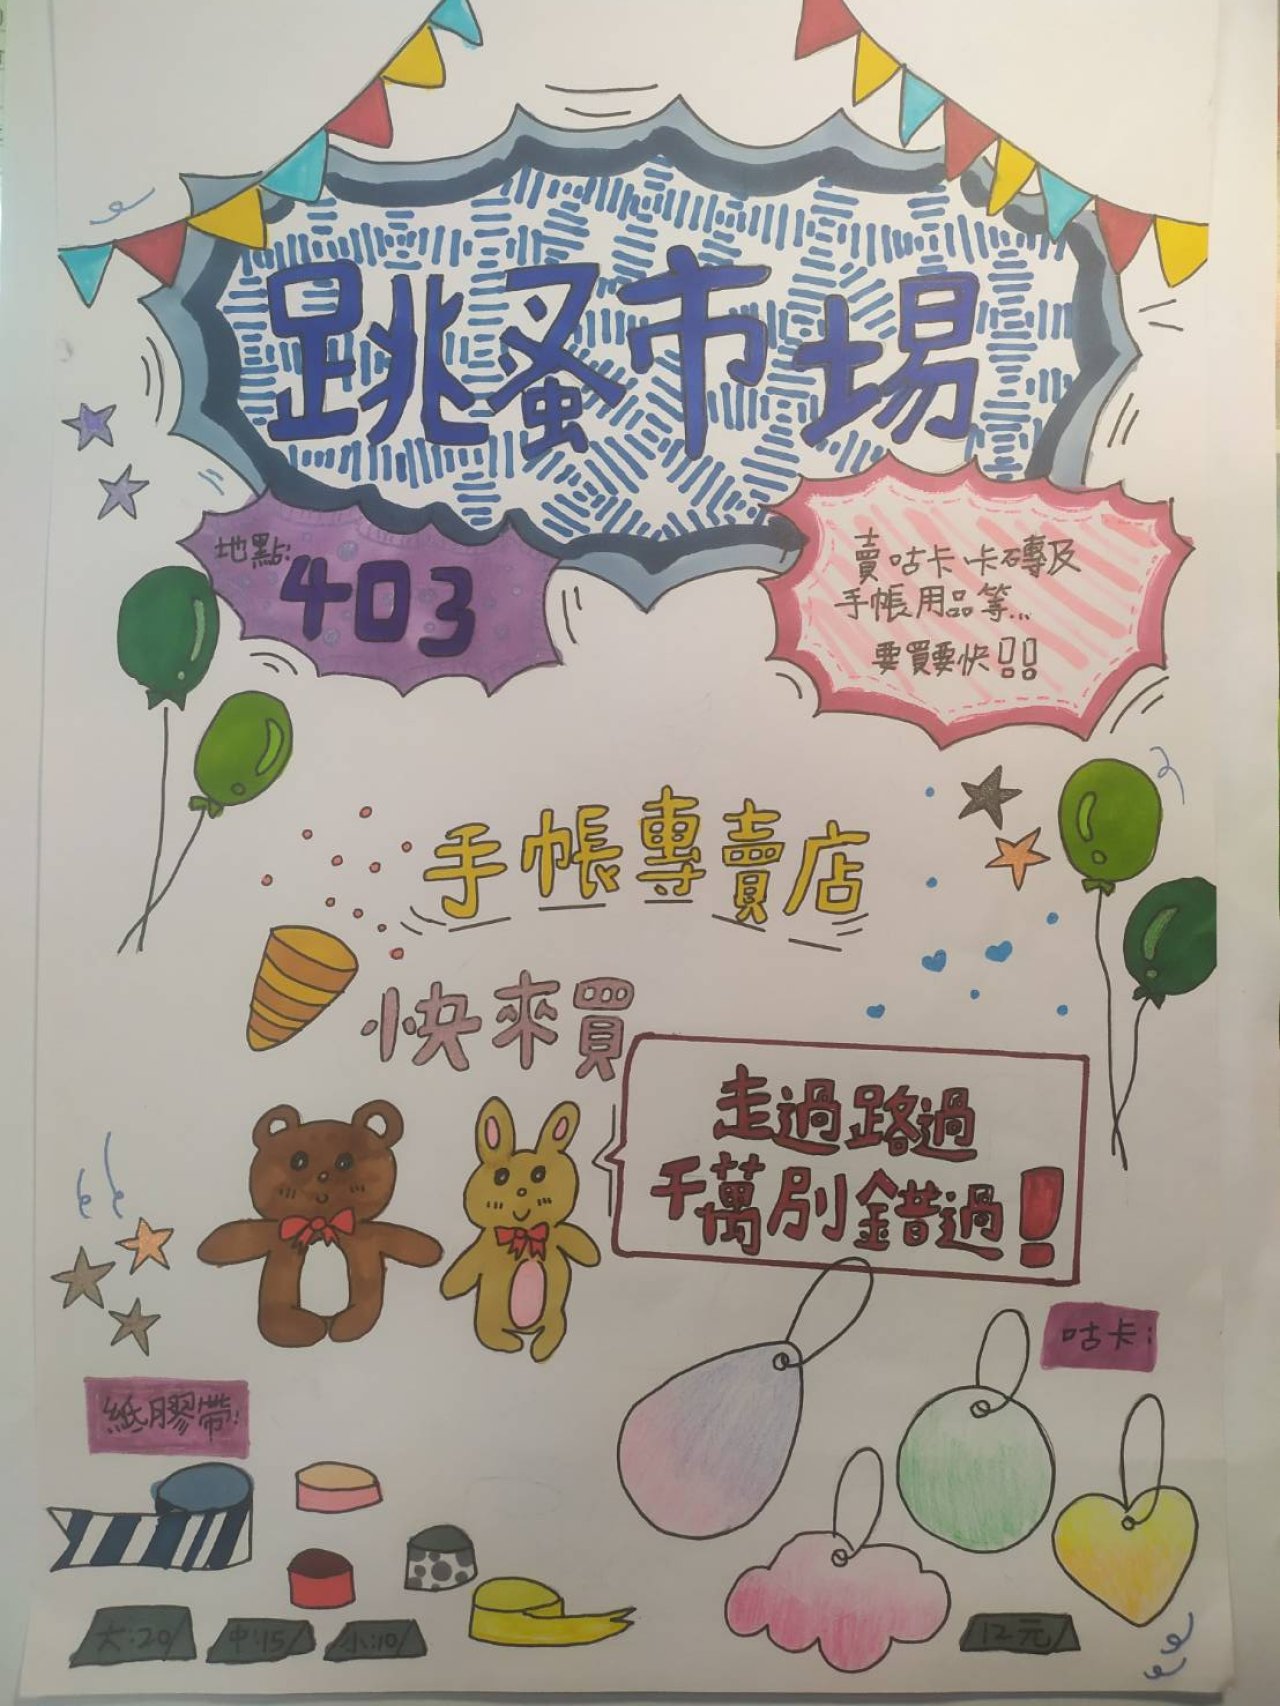 跳蚤市場
地點:
403
賣咕卡、卡磚及
手帳用品等...
要買要快!!
手帳專賣店
快來買
走過路過
千萬別錯過!
咕卡:
紙膠帶:
大:20
中:15
小:10
12元